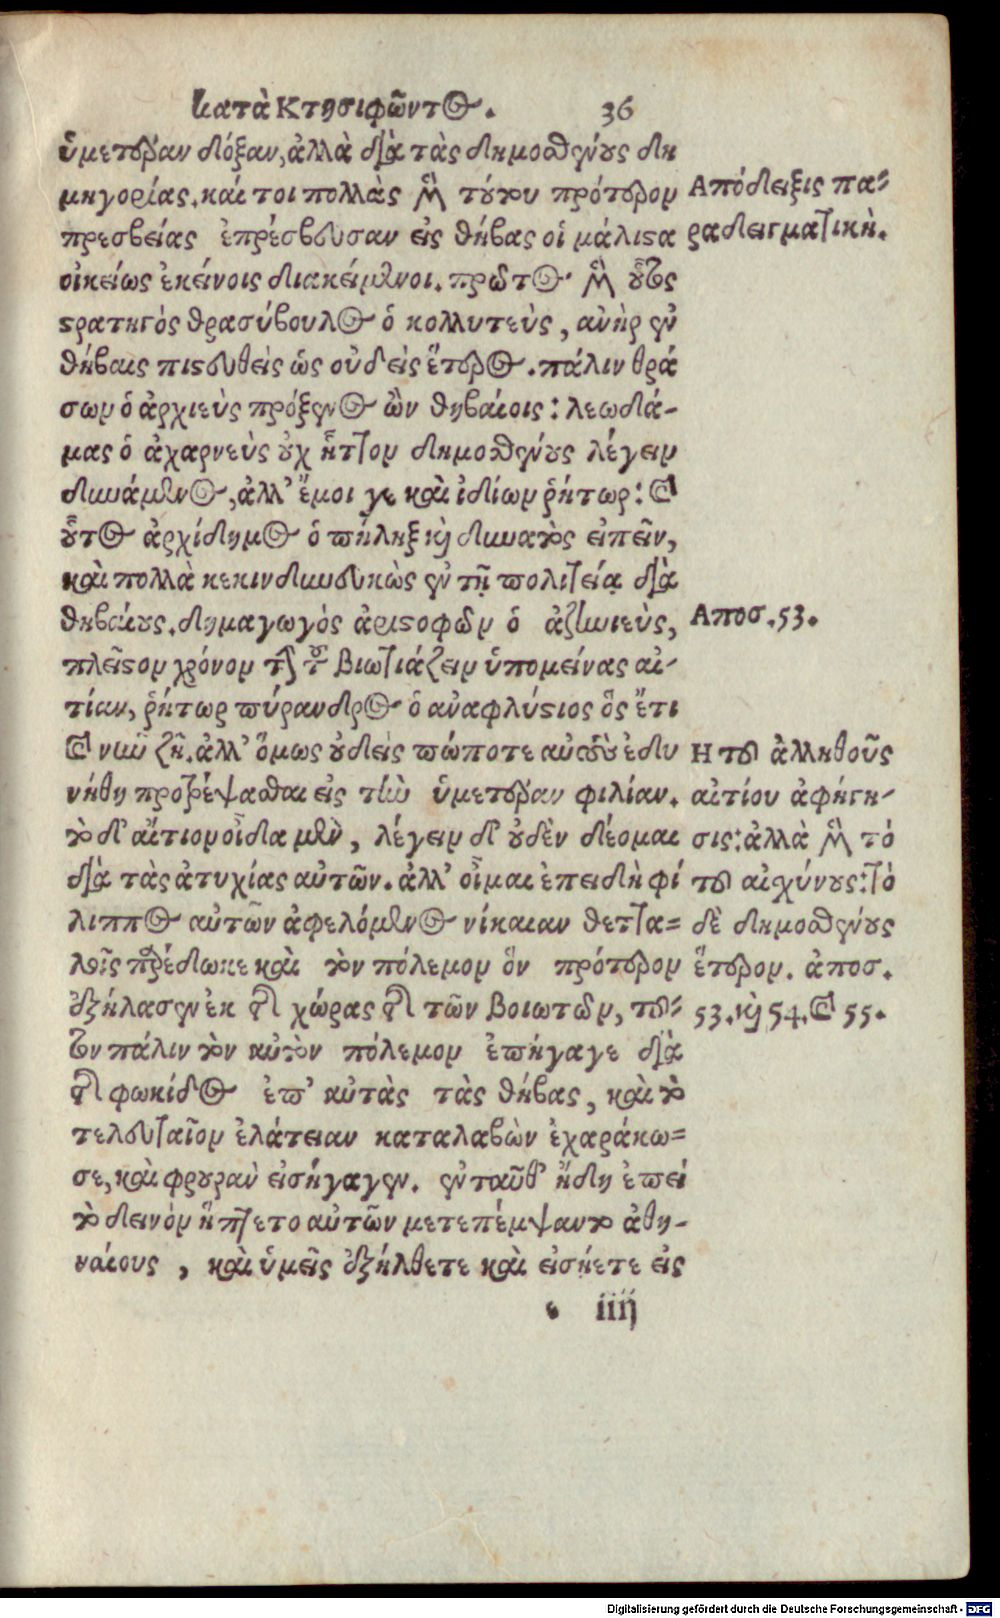 κατὰ Κτησιφῶντος. 36
ὑμετέραν δόξαν, ἀλλὰ διὰ τὰς δημοσθένους δη
μηγορίας. καί τοι πολλὰς γὰρ τούτου πρότερον
πρεσβείας ἐπρέσβευσαν εἰς θήβας οἱ μάλιστα
οἰκείως ἐκείνοις διακείμενοι. πρῶτος γὰρ οὗτος
στρατηγὸς θρασύβουλος ὁ κολλυτεὺς, ἀνὴρ ἐν
θήβαις πιστευθεὶς ὡς οὐδεὶς ἕτερος. πάλιν θρά
σων ὁ ἀρχιεὺς πρόξενος ὢν θηβαίοις: λεωδά-
μας ὁ ἀχαρνεὺς οὐχ ἧττον δημοσθένους λέγειν
δυνάμενος, ἀλλ' ἔμοι γε καὶ ἰδίων ῥήτωρ: καὶ
οὗτος ἀρχίδημος ὁ πήληξ καὶ δυνατὸς εἰπεῖν,
καὶ πολλὰ κεκινδυνευκὼς ἐν τῇ πολιτείᾳ διὰ
θηβαίους. δημαγωγὸς ἀριστοφῶν ὁ ἀζηνιεὺς,
πλεῖστον χρόνον τὴν τοῦ βιωτιάζειν ὑπομείνας αἰ-
τίαν, ῥήτωρ πύρανδρος ὁ ἀναφλύστιος ὃς ἔτι
καὶ νῦν ζῇ. ἀλλ' ὅμως οὐδεὶς πώποτε αὐτοὺς ἐδυ
νήθη προτρέψασθαι εἰς τὴν ὑμετέραν φιλίαν.
τὸ δ' αἴτιον οἶδα μὲν, λέγειν δ' οὐδὲν δέομαι
διὰ τὰς ἀτυχίας αὐτῶν. ἀλλ' οἶμαι ἐπειδὴ φί
λιππος αὐτῶν ἀφελόμενος νίκαιαν θεττα-
λοῖς παρέδωκε καὶ τὸν πόλεμον ὃν πρότερον
ἐξήλασεν ἐκ τῆς χώρας τῆς τῶν βοιωτῶν, τοῦ-
τον πάλιν τὸν αὐτὸν πόλεμον ἐπήγαγε διὰ
τῆς φωκίδος ἐπ' αὐτὰς τὰς θήβας, καὶ τὸ
τελευταῖον ἐλάτειαν καταλαβὼν ἐχαράκω-
σε, καὶ φρουρὰν εἰσήγαγεν. ἐνταῦθ' ἤδη ἐπεὶ
τὸ δεινὸν ἥπτετο αὐτῶν μετεπέμψαντο ἀθη-
ναίους, καὶ ὑμεῖς ἐξήλθετε καὶ εἰσῄετε εἰς
ε iiij
Απόδειξις πα-
ραδειγματικὴ.
Αποσ. 53.
Η τοῦ ἀλληθοῦς
αἰτίου ἀφήγη-
σις: ἀλλὰ γὰρ τὸ
τοῦ αἰσχύνους: τὸ
δὲ δημοσθένους
ἕτερον. ἀποσ.
53. καὶ 54. καὶ 55.
Digitalisierung gefördert durch die Deutsche Forschungsgemeinschaft - DFG